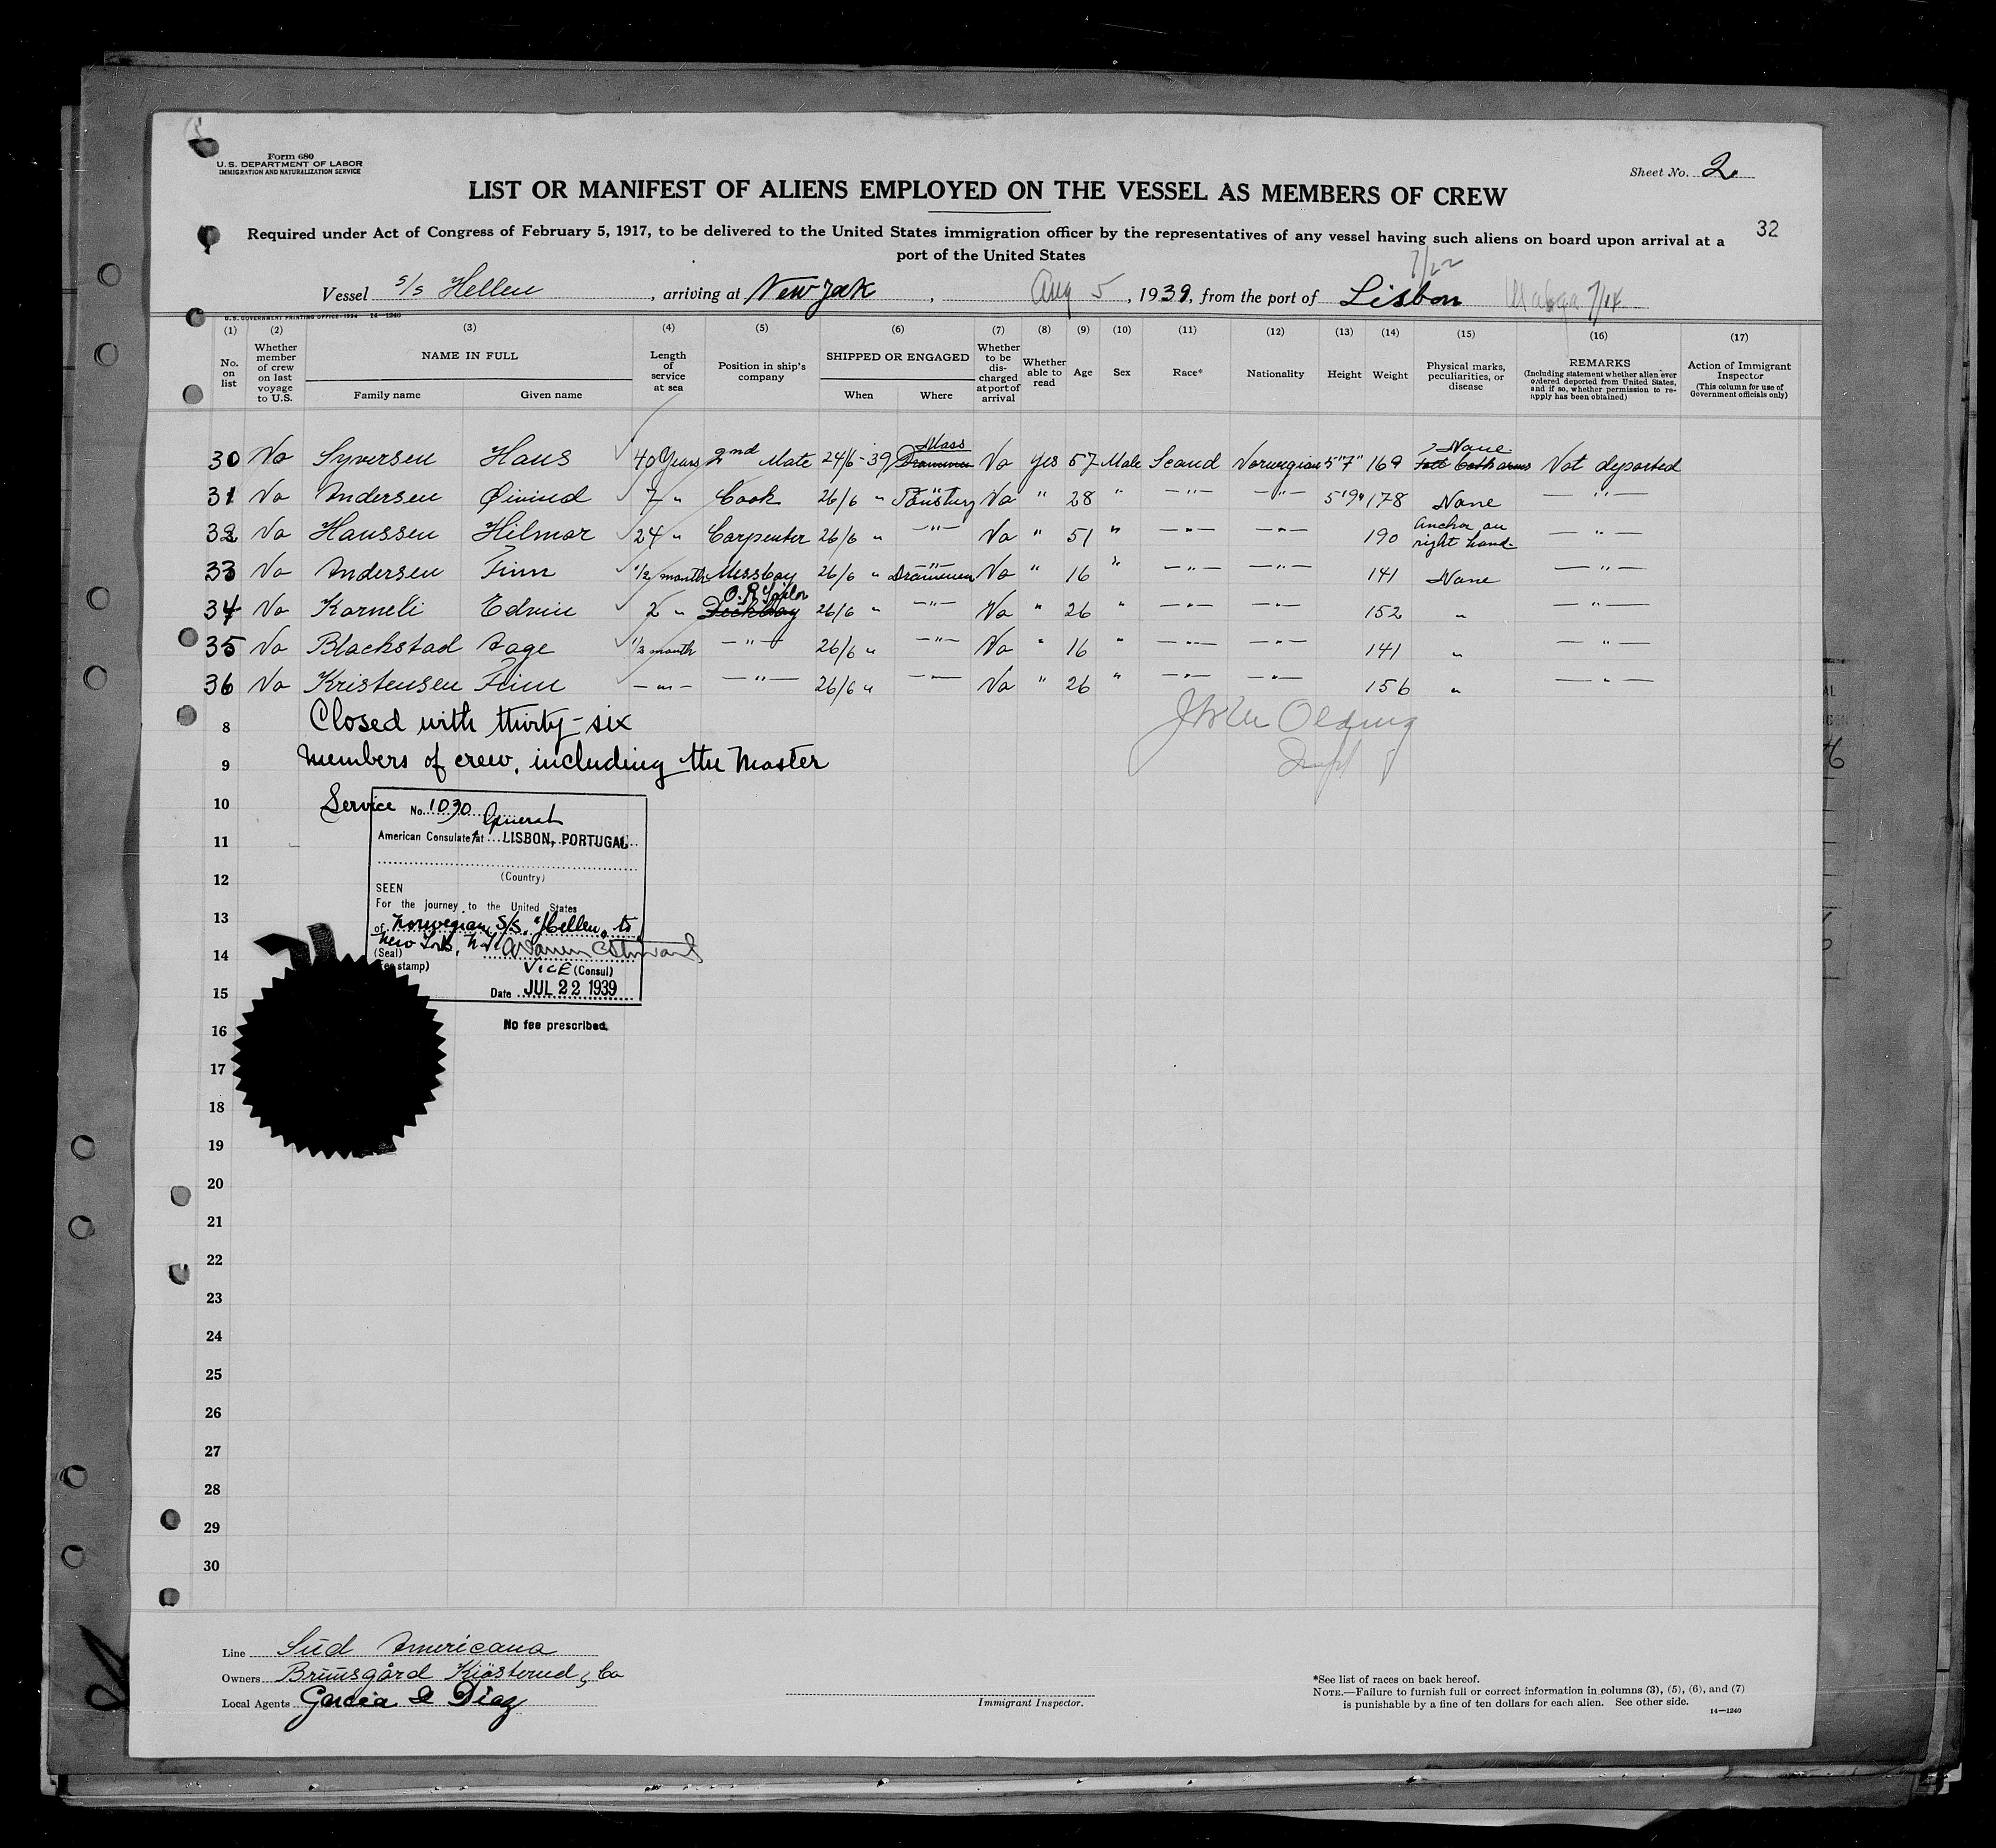 Form 680
U. S. DEPARTMENT OF LABOR
IMMIGRATION AND NATURALIZATION SERVICE
Sheet No. 2
LIST OR MANIFEST OF ALIENS EMPLOYED ON THE VESSEL AS MEMBERS OF CREW
32
Required under Act of Congress of February 5, 1917, to be delivered to the United States immigration officer by the representatives of any vessel having such aliens on board upon arrival at a
port of the United States
7/22
Vessel s/s Hellen, arriving at New York, Aug 5, 1939, from the port of Lisbon Malaga 7/14
U. S. GOVERNMENT PRINTING OFFICE: 1934 14—1240
(1) (2) (3) (4) (5) (6) (7) (8) (9) (10) (11) (12) (13) (14) (15) (16) (17)
No. on list
Whether member of crew on last voyage to U.S.
NAME IN FULL
Family name Given name
Length of service at sea
Position in ship's company
SHIPPED OR ENGAGED
When Where
Whether to be discharged at port of arrival
Whether able to read
Age
Sex
Race*
Nationality
Height
Weight
Physical marks, peculiarities, or disease
REMARKS
(Including statement whether alien ever ordered deported from United States, and if so, whether permission to reapply has been obtained)
Action of Immigrant Inspector
(This column for use of Government officials only)
Mass None
30 No Syversen Hans 40 Years 2nd Mate 24/6-39 Drammen No Yes 57 Male Scand Norwegian 5"7" 169 both arms Not deported
31 No Andersen Øivind 7 " Cook 26/6 " Tönsberg No " 28 " —"— —"— 5'9" 178 None —"—
32 No Hanssen Hilmar 24 " Carpenter 26/6 " —"— No " 51 " —"— —"— 190 Anchor on right hand —"—
33 No Andersen Finn 1/2 month Messboy 26/6 " Drammen No " 16 " —"— —"— 141 None —"—
34 No Korneli Edvin 2 " O.R. Sailor Deckboy 26/6 " —"— No " 26 " —"— —"— 152 " —"—
35 No Blackstad Aage 1/2 month —"— 26/6 " —"— No " 16 " —"— —"— 141 " —"—
36 No Kristensen Finn —"— —"— 26/6 " —"— No " 26 " —"— —"— 156 " —"—
8 Closed with thirty-six
9 members of crew, including the Master
10 Service No. 1030
General
11 American Consulate at LISBON, PORTUGAL
12 (Country)
SEEN
For the journey to the United States
13 of Norwegian S/S. "Hellen" to
New York, N.Y.
14 (Seal)
(Fee stamp) VICE (Consul)
15 Date JUL 22 1939
16 No fee prescribed.
17
18
19
20
21
22
23
24
25
26
27
28
29
30
Line Süd Americana
Owners Bruusgård Kiösterud & Co
Local Agents Garcia & Diaz
Immigrant Inspector.
*See list of races on back hereof.
NOTE.—Failure to furnish full or correct information in columns (3), (5), (6), and (7)
is punishable by a fine of ten dollars for each alien. See other side.
14—1240